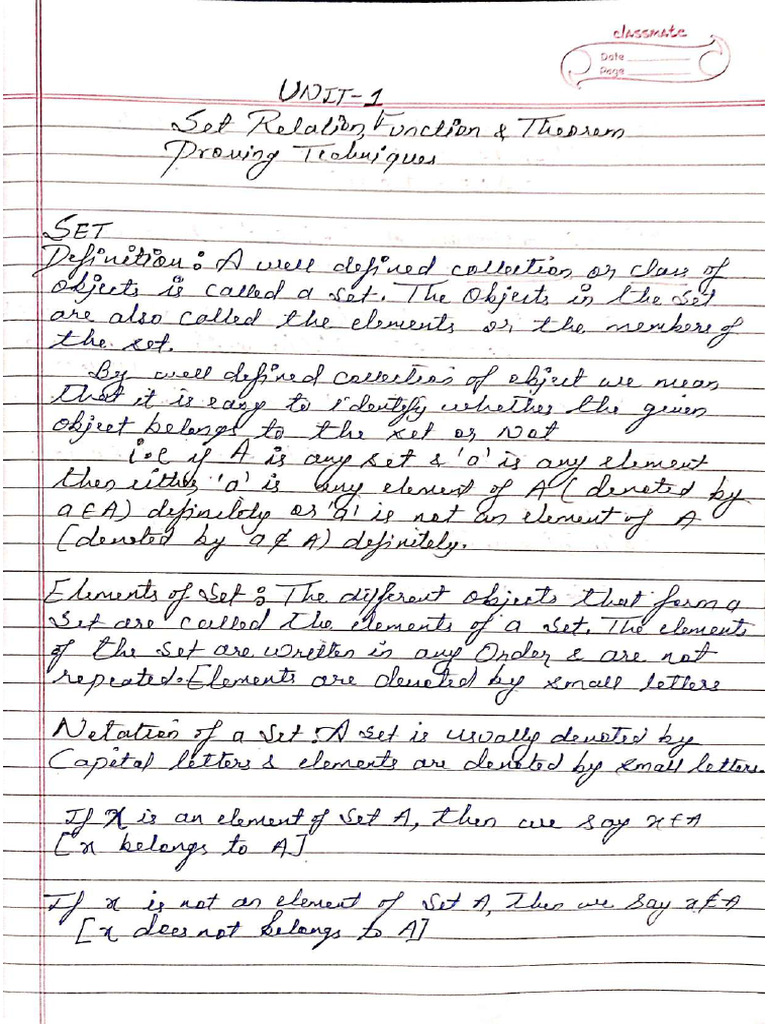 classmate
Date
Page
UNIT-1
Set Relation, Function & Theorem
Proving Techniques
SET
Definition: A well defined collection or class of
objects is called a set. The Objects in the set
are also called the elements or the members of
the set.
By well defined collection of object we mean
that it is easy to identify whether the given
object belongs to the set or Not
i.e if A is any set & 'a' is any element
then either 'a' is any element of A (denoted by
a∈A) definitely or 'a' is not an element of A
(denoted by a∉A) definitely.
Elements of Set: The different objects that form a
Set are called the elements of a set. The elements
of the set are written in any Order & are not
repeated. Elements are denoted by small letters
Notation of a Set: A set is usually denoted by
Capital letters & elements are denoted by small letters.
If x is an element of set A, then we say x∈A
[x belongs to A]
If x is not an element of set A, then we say x∉A
[x does not belongs to A]